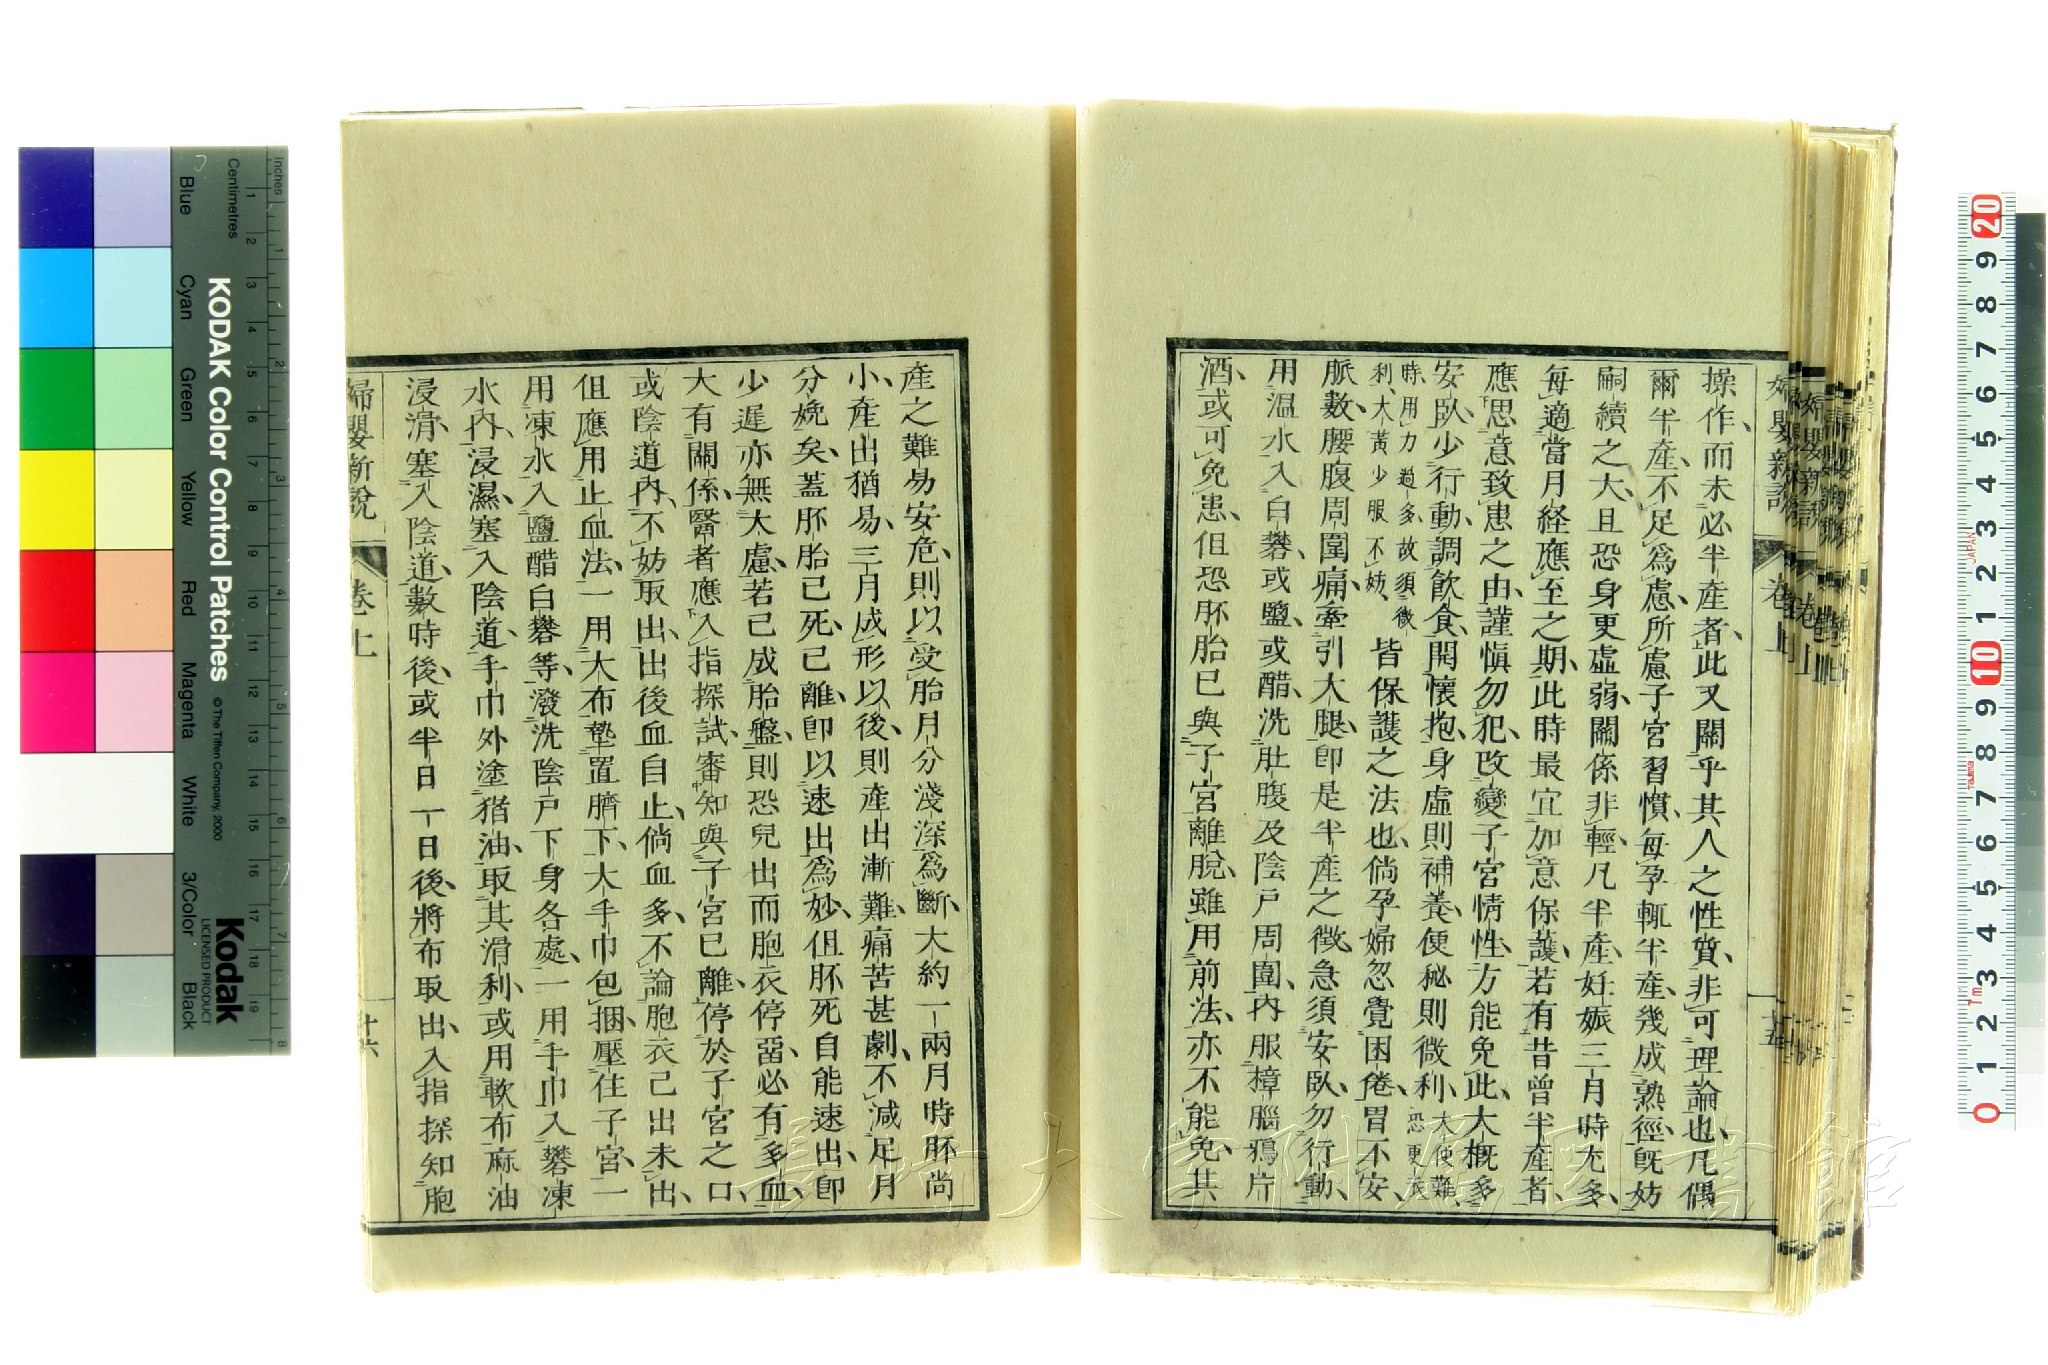 操作、而未必半產者、此又關乎其人之性質、非可理論也、凡偶
爾半產、不足爲慮、所慮子宮習慣、每孕輒半產、幾成熟徑、旣妨
嗣續之大、且恐身更虛弱、關係非輕、凡半產、妊娠三月時尤多、
每適當月経應至之期、此時最宜加意保護、若有昔曾半產者、
應思意致患之由、謹愼勿犯、改變子宮情性、方能免此、大槪多
安臥、少行動、調飲食、開懷抱、身虛則補養、便秘則微利、大便難、恐更衣
時、用力過多、故須微利、大黃少服不妨、皆保護之法也、倘孕婦忽覺困倦、胃不安、
脈數、腰腹周圍痛、牽引大腿、卽是半產之徵、急須安臥、勿行動、
用温水入白礬、或鹽、或醋、洗肚腹及陰戶周圍、內服樟腦鴉片
酒、或可免患、但恐胚胎已與子宮離脫、雖用前法、亦不能免、其
婦嬰新說
卷上
十五
產之難易安危、則以受胎月分淺深爲斷、大約一兩月時胚尚
小、產出猶易、三月成形以後、則產出漸難、痛苦甚劇、不減足月
分娩矣、蓋胚胎已死、已離、卽以速出爲妙、但胚死自能速出、卽
少遲亦無大慮、若已成胎盤、則恐兒出而胞衣停畱、必有多血、
大有關係、醫者應入指探試、審知與子宮已離、停於子宮之口、
或陰道內、不妨取出、出後血自止、倘血多、不論胞衣已出未出、
但應用止血法、一用大布墊置臍下、大手巾包捆、壓住子宮、一
用凍水入鹽醋白礬等、潑洗陰戶下身各處、一用手巾入礬凍
水內、浸濕、塞入陰道、手巾外塗猪油、取其滑利、或用軟布麻油
浸滑、塞入陰道、數時後、或半日一日後、將布取出、入指探知胞
婦嬰新說
卷上
十六
KODAK Color Control Patches
© The Tiffen Company, 2000
Kodak
LICENSED PRODUCT
Inches
Centimetres
Blue
Cyan
Green
Yellow
Red
Magenta
White
3/Color
Black
長崎大学附属図書館